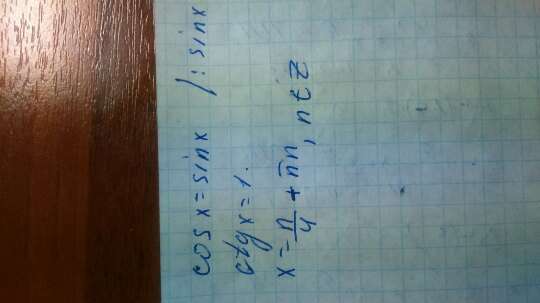 cos x = sin x /: sin x
ctg x = 1.
x = π/4 + πn, n ∈ Z